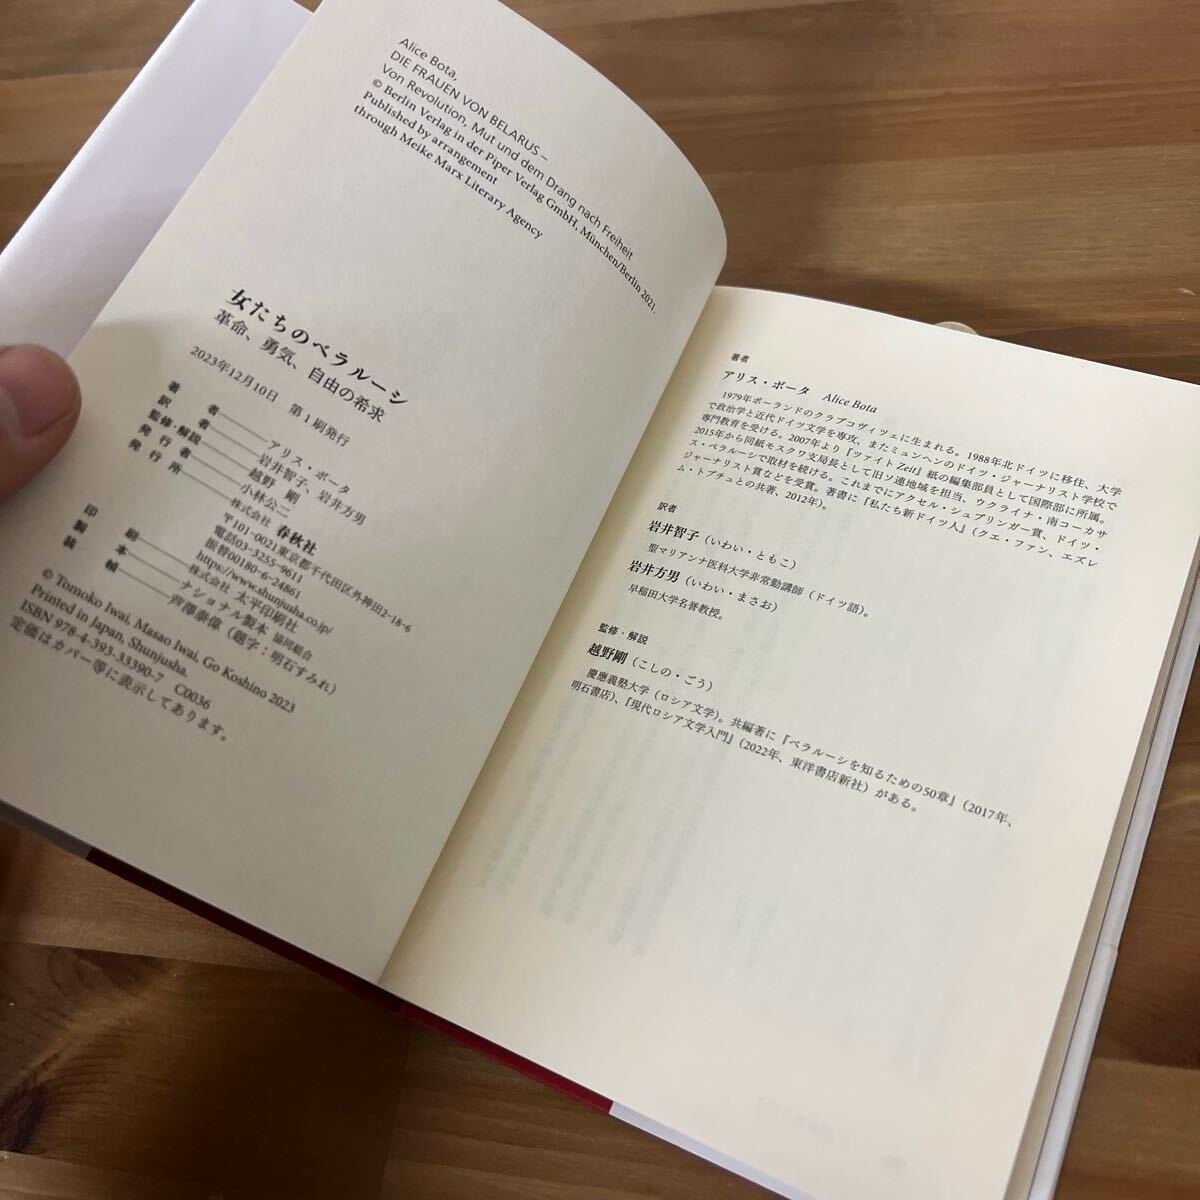 Alice Bota,
DIE FRAUEN VON BELARUS –
Von Revolution, Mut und dem Drang nach Freiheit
© Berlin Verlag in der Piper Verlag GmbH, München/Berlin 2021.
Published by arrangement
through Meike Marx Literary Agency
女たちのベラルーシ
革命、勇気、自由の希求
2023年12月10日 第1刷発行
著 者——アリス・ボータ
訳 者——岩井智子、岩井方男
監修・解説——越野 剛
発 行 者——小林公二
発 行 所——株式会社 春秋社
〒101-0021東京都千代田区外神田2-18-6
電話03-3255-9611
振替00180-6-24861
https://www.shunjusha.co.jp/
印 刷——株式会社 太平印刷社
製 本——ナショナル製本 協同組合
装 幀——芦澤泰偉（題字：明石すみれ）
© Tomoko Iwai, Masao Iwai, Go Koshino 2023
Printed in Japan, Shunjusha.
ISBN 978-4-393-33390-7 C0036
定価はカバー等に表示してあります。
著者
アリス・ボータ Alice Bota
1979年ポーランドのクラプコヴィツェに生まれる。1988年北ドイツに移住、大学
で政治学と近代ドイツ文学を専攻、またミュンヘンのドイツ・ジャーナリスト学校で
専門教育を受ける。2007年より『ツァイト Zeit』紙の編集部員として国際部に所属。
2015年から同紙モスクワ支局長として旧ソ連地域を担当、ウクライナ・南コーカサ
ス・ベラルーシで取材を続ける。これまでにアクセル・シュプリンガー賞、ドイツ・
ジャーナリスト賞などを受賞。著書に『私たち新ドイツ人』（クエ・ファン、エズレ
ム・トプチュとの共著、2012年）。
訳者
岩井智子（いわい・ともこ）
聖マリアンナ医科大学非常勤講師（ドイツ語）。
岩井方男（いわい・まさお）
早稲田大学名誉教授。
監修・解説
越野剛（こしの・ごう）
慶應義塾大学（ロシア文学）。共編著に『ベラルーシを知るための50章』（2017年、
明石書店）、『現代ロシア文学入門』（2022年、東洋書店新社）がある。